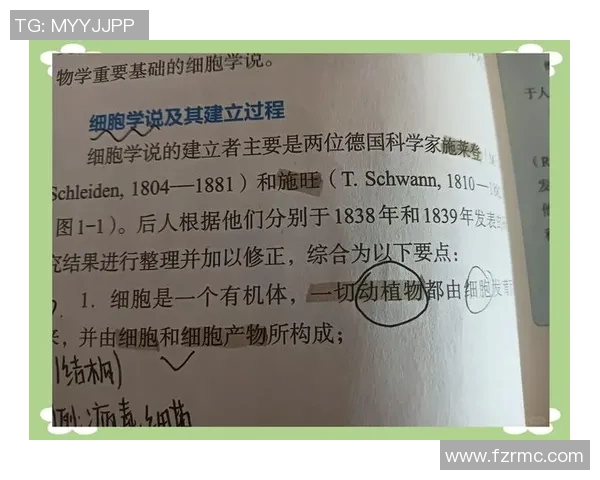 TG: MYYJJPP
物学重要基础的细胞学说。
细胞学说及其建立过程
细胞学说的建立者主要是两位德国科学家施莱登
Schleiden, 1804—1881）和施旺（T. Schwann, 1810—
图1-1）。后人根据他们分别于1838年和1839年发表
究结果进行整理并加以修正，综合为以下要点：
1. 细胞是一个有机体，一切动植物都由细胞发育
来，并由细胞和细胞产物所构成；
(结构)
病毒 细菌
于人
(R
发
他
www.fzrmc.com